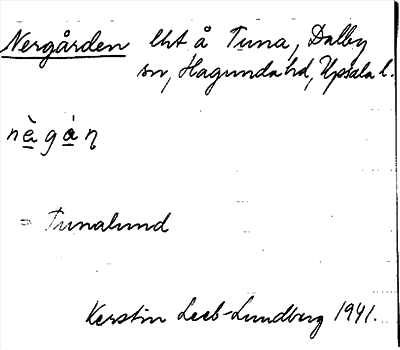 Nergården lht å Tuna, Dalby
sn, Hagunda hd, Upsala l.
nègȧn
= Tunalund
Kerstin Leeb-Lundberg 1941.